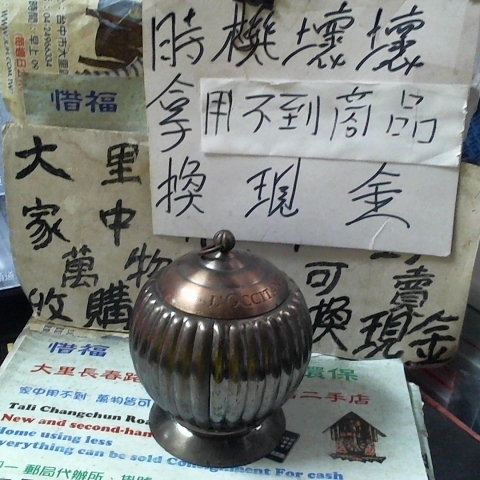 時機壞壞
拿用不到商品
換現金
惜福
大里
家中
萬物
收購
可賣
換現金
L'OCCIT
惜福
大里長春路
環保
家中用不到 萬物皆可
二手店
Tali Changchun Roa
New and second-han
Home using less
verything can be sold Consignment For cash
郵局代辦所